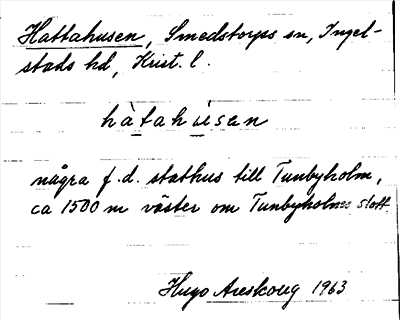 Hattahusen, Smedstorps sn, Ingel-
stads hd, Krist. l.
hàtahusen
några f.d. stathus till Tunbyholm,
ca 1500 m väster om Tunbyholms slott.
Hugo Areskoug 1963